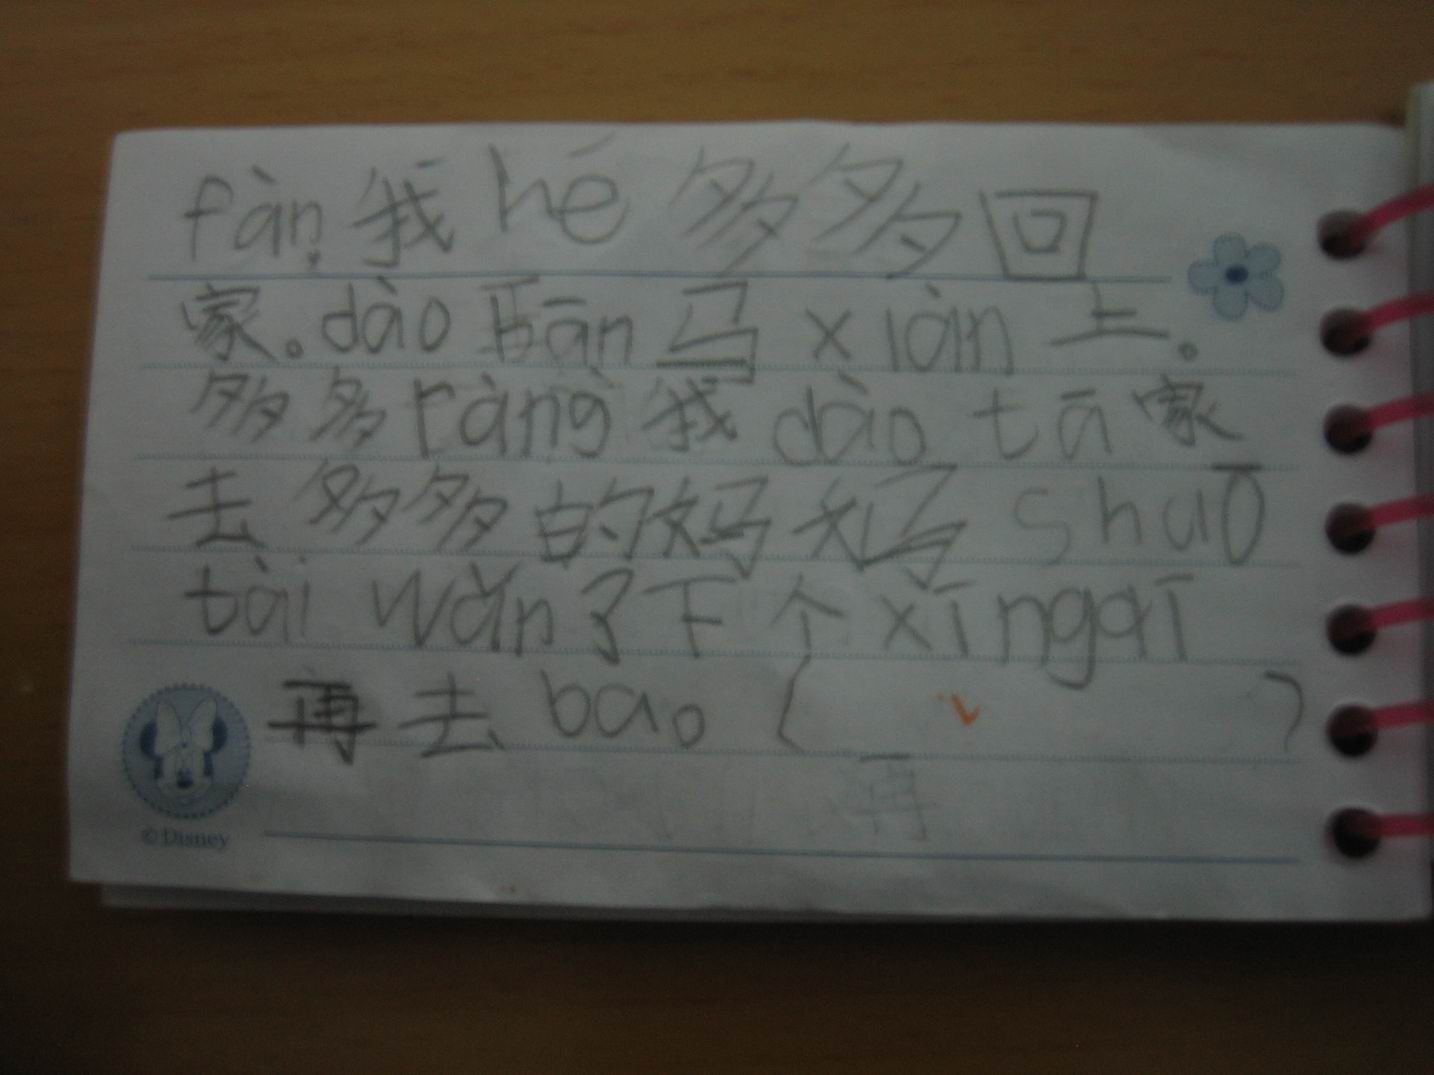 fàn,我hé多多回
家。dào bān马xiàn上。
多多ràng我dào tā家
去多多的妈妈shuō
tài wǎn了下个xīngqī
再去ba。(     )
©Disney